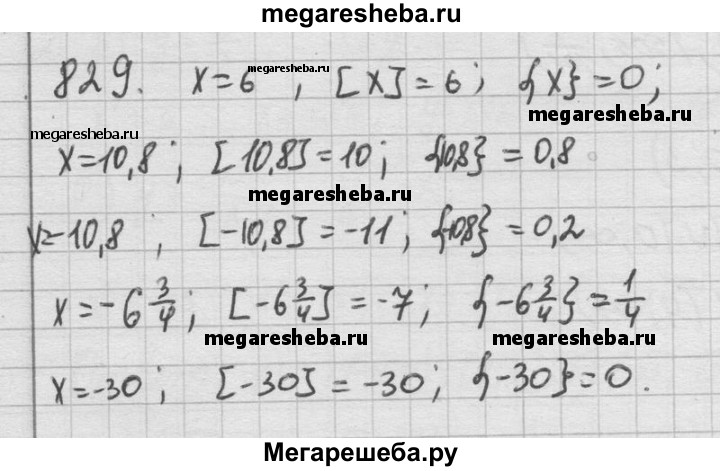 megaresheba.ru
829. x=6 megaresheba.ru , [x]=6; {x}=0;
megaresheba.ru
megaresheba.ru
x=10,8; [10,8]=10; {10,8}=0,8
megaresheba.ru
x=-10,8; [-10,8]=-11; {-10,8}=0,2
x=-6 3/4; [-6 3/4]=-7; {-6 3/4}=1/4
megaresheba.ru megaresheba.ru
x=-30; [-30]=-30; {-30}=0.
Мегарешеба.ру